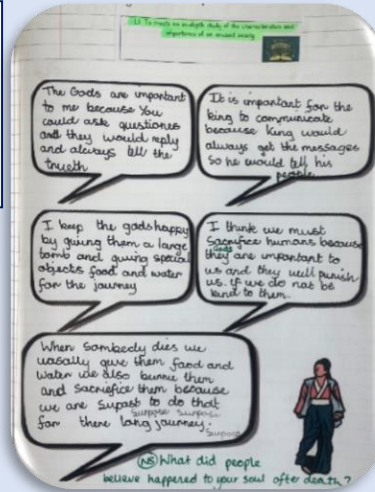 LI: To create an in-depth study of the characteristics and
importance of an ancient society
The Gods are important
to me because You
could ask questiones
and they would reply
and always tell the
trueth
It is important for the
king to communicate
because King would
always get the messages
so he would tell his
people
I keep the gods happy
by giving them a large
tomb and giving special
objects food and water
for the journey
I think we must
Sacrifice humans because
Gods
they are important to
us and they will punish
us. if we do not be
kind to them.
When Sombedy dies we
uasally give them food and
water we also burrie them
and sacriefice them because
we are Supast to do that
Surpose Surpose
for there long journey.
Surpost
NS What did people
believe happened to your soul after death?